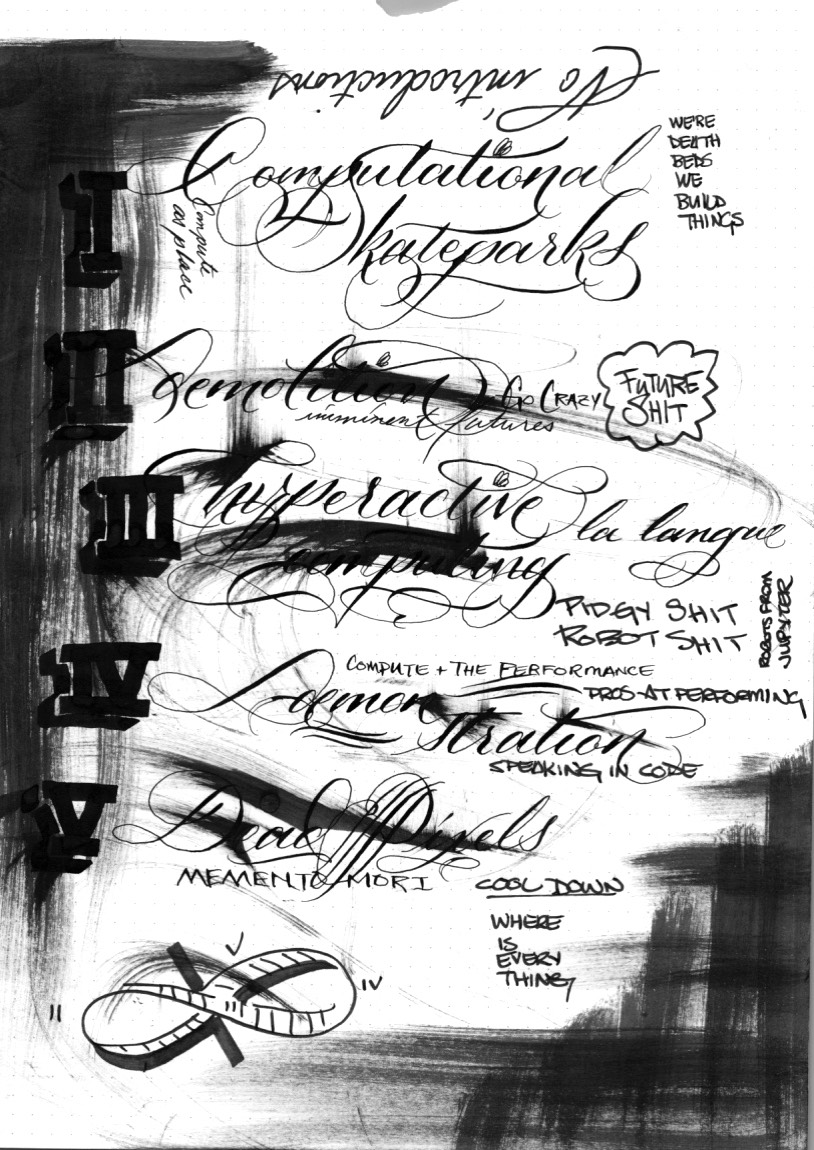 No introductions
Computational
Skateparks
WE'RE
DEATH
BEDS
WE
BUILD
THINGS
I
Compute
as place
II
demolition
imminent futures
GO CRAZY
FUTURE
SHIT
III
hyperactive
computing
la langue
PIDGY SHIT
ROBOT SHIT
ROBOTS FROM
JUPYTER
IV
COMPUTE + THE PERFORMANCE
PROS AT PERFORMING
demon
stration
SPEAKING IN CODE
V
Dead Pixels
MEMENTO MORI
COOL DOWN
WHERE
IS
EVERY
THING
V
II
III
IV